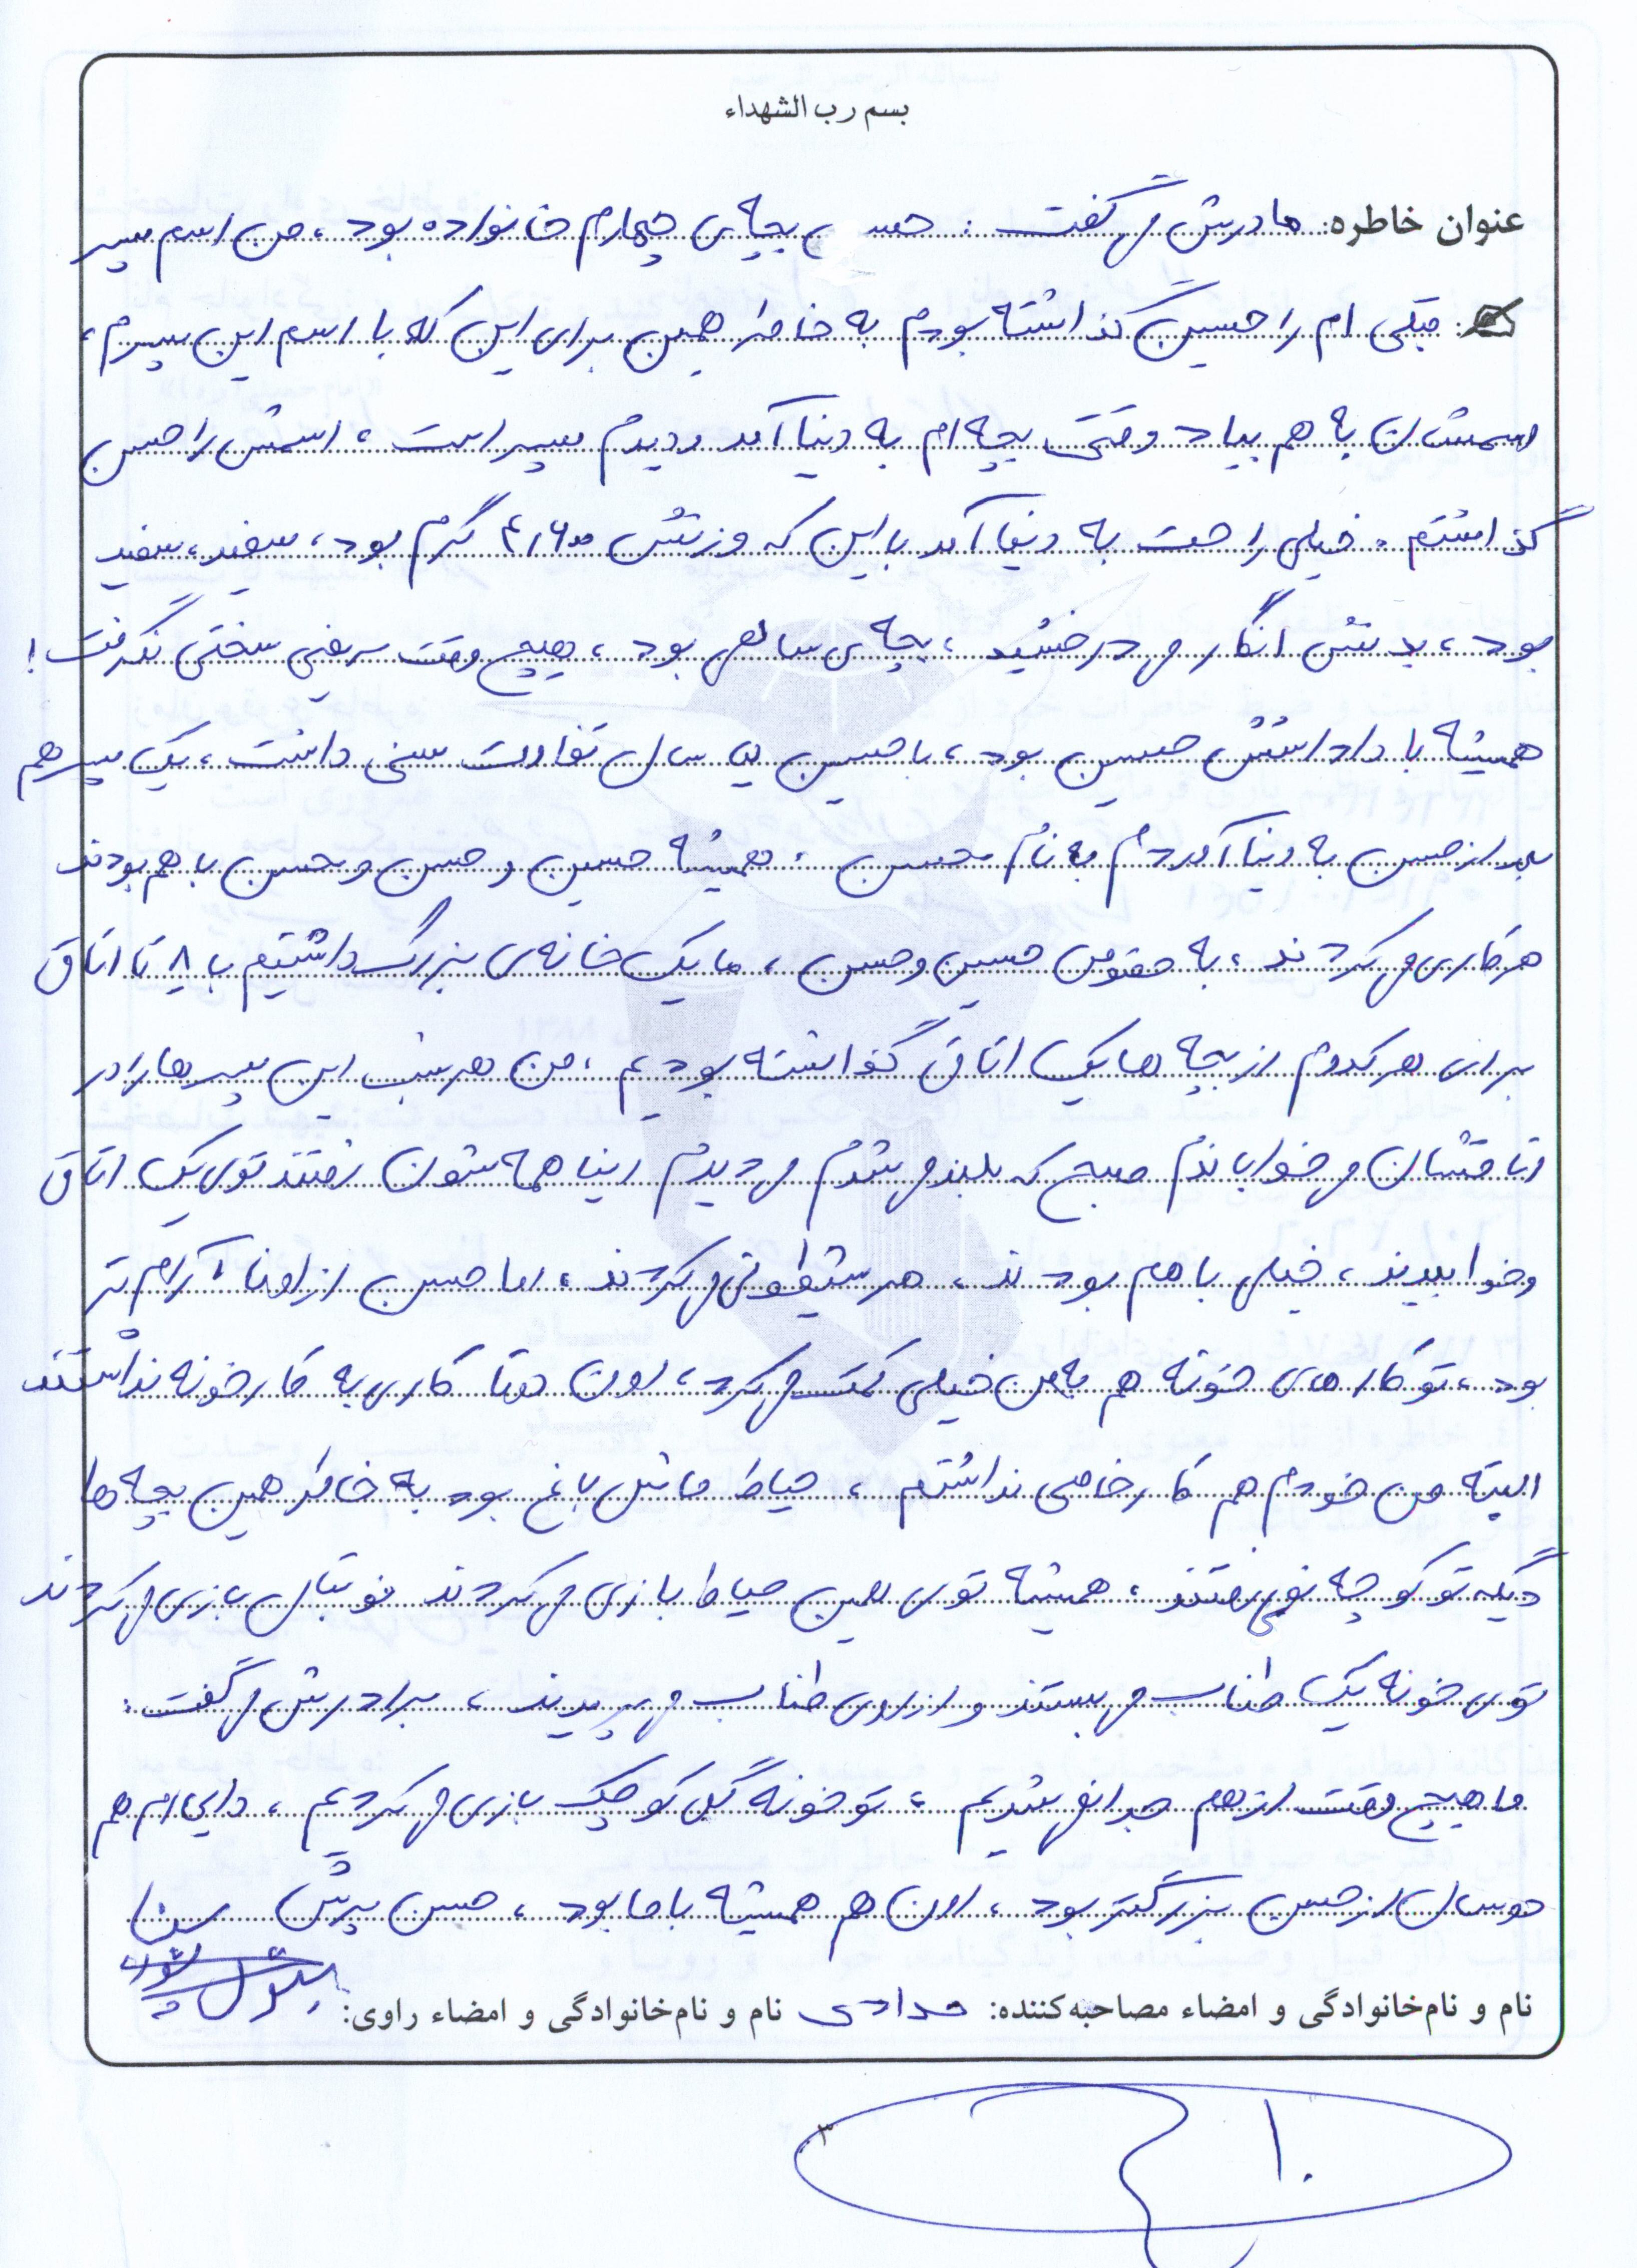 بسم رب الشهداء
عنوان خاطره: مادرش می گفت : حسن بچه ی چهارم خانواده بود ، من اسم پسر
قبلی ام را حسین گذاشته بودم به خاطر همین برای این که با اسم این پسرم ،
اسمشان به هم بیاد وقتی بچه ام به دنیا آمد و دیدم پسر است ، اسمش را حسن
گذاشتم . خیلی راحت به دنیا آمد با این که وزنش ۴٫۶۰۰ گرم بود ، سفید ، سفید
بود ، بدنش انگار می درخشید ، بچه ی سالمی بود ، هیچ وقت مریضی سختی نگرفت !
همیشه با داداشش حسین بود ، با حسین سال تفاوت سنی داشت ، یک پسر هم
بعد از حسن به دنیا آوردم به نام محسن . همیشه حسین و حسن و محسن با هم بودند
هر کاری می کردند ، به خصوص حسین و حسن ، ما یک خانه ی بزرگ داشتیم با ۸ تا اتاق
برای هر کدوم از بچه ها یک اتاق گذاشته بودیم ، من هر شب این پسرها را در
اتاقشان می خواباندم صبح که بلند می شدم می دیدم اینا همه شون رفتند توی یک اتاق
و خوابیدند ، خیلی با هم بودند ، هر شیطونی می کردند ، اما حسن از اونا آرام تر
بود ، تو کارهای خونه هم به من خیلی کمک می کرد ، اون دوتا کاری به کار خونه نداشتند
البته من خودم هم کار خاصی نداشتم ، حیاط ما مثل باغ بود به خاطر همین بچه ها
دیگه تو کوچه نمی رفتند ، همیشه توی همین حیاط بازی می کردند فوتبال بازی می کردند
توی خونه یک طناب می بستند و از روی طناب می پریدند ، برادرش می گفت :
ما هیچ وقت از هم جدا نمی شدیم ، تو خونه گل کوچک بازی می کردیم ، دایی ام هم
دو سال از حسن بزرگتر بود ، اون هم همیشه با ما بود ، حسن پرش
نام و نام‌خانوادگی و امضاء مصاحبه‌کننده: مدادی نام و نام‌خانوادگی و امضاء راوی:
۳